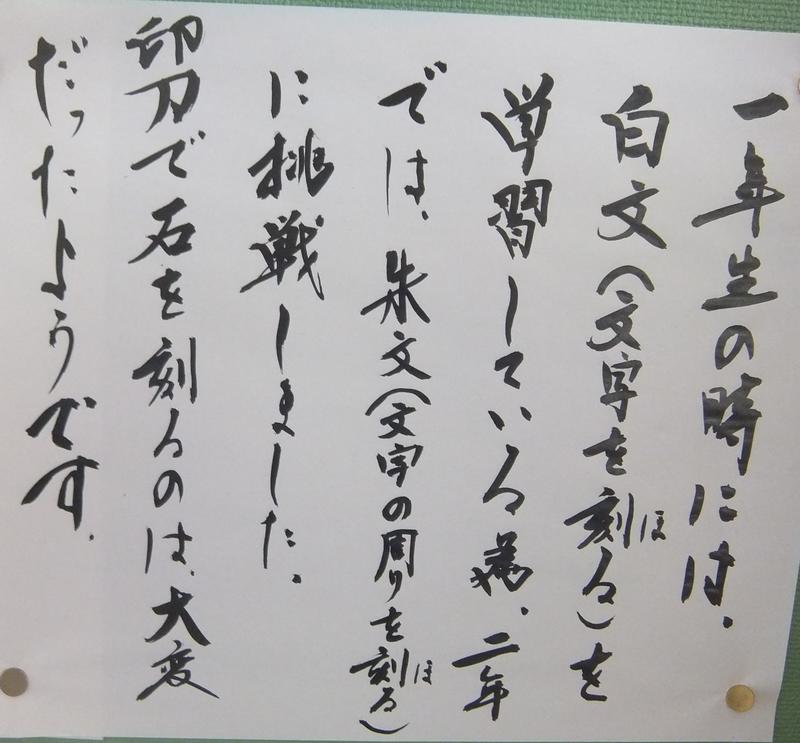 一年生の時には、
白文(文字を刻る)を
ほ
学習している為、二年
では、朱文(文字の周りを刻る)
ほ
に挑戦しました。
印刀で石を刻るのは、大変
だったようです。